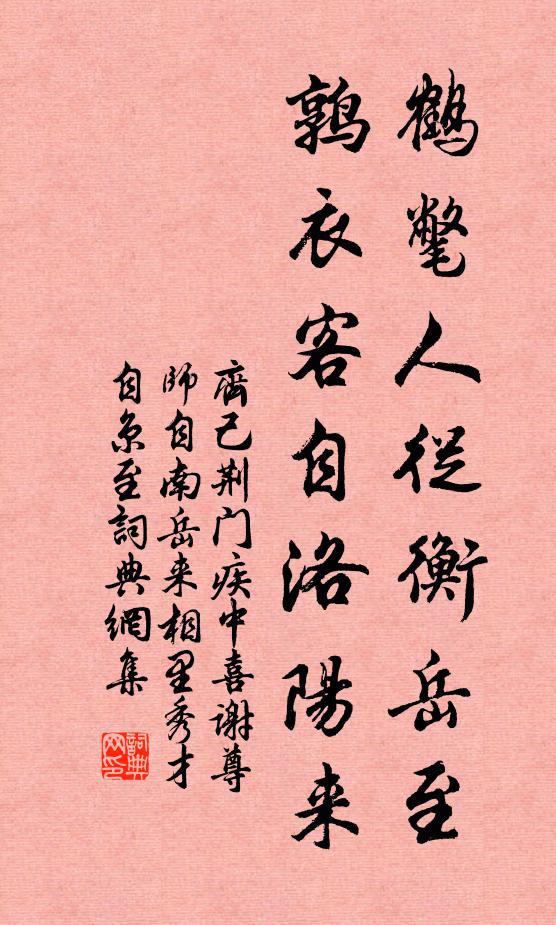 鶴氅人從衡岳至
鶉衣客自洛陽来
齊己荆门疾中喜谢尊
師自南岳来相里秀才
自京至詞典網集
詞典网印